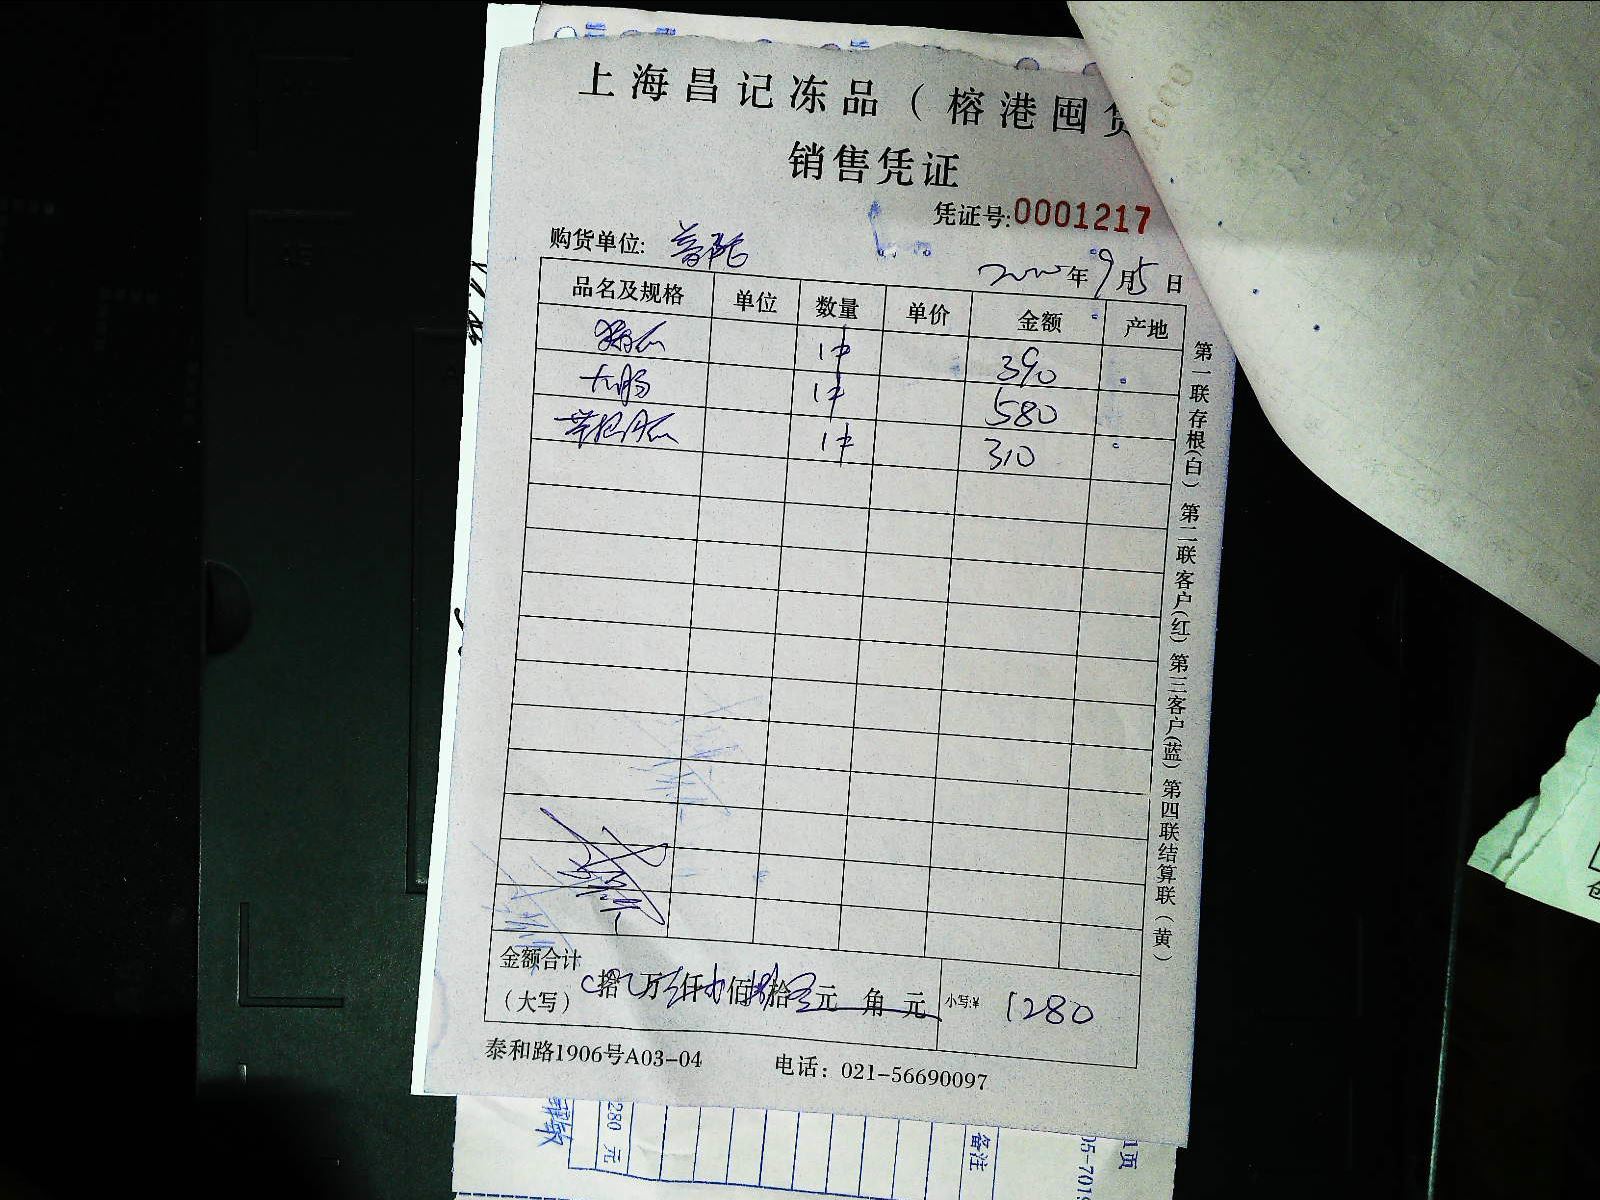 上海昌记冻品（榕港囤货
销售凭证
凭证号:0001217
购货单位: 普陀
年9月5日
品名及规格 单位 数量 单价 金额 产地
1件 390
大肠 1件 580
1件 310
金额合计
（大写） 拾 万 仟 佰 拾 元 角 元 小写:¥ 1280
泰和路1906号A03-04 电话：021-56690097
第一联存根(白) 第二联客户(红) 第三客户(蓝) 第四联结算联（黄）
280 元
备注
05-701
1页